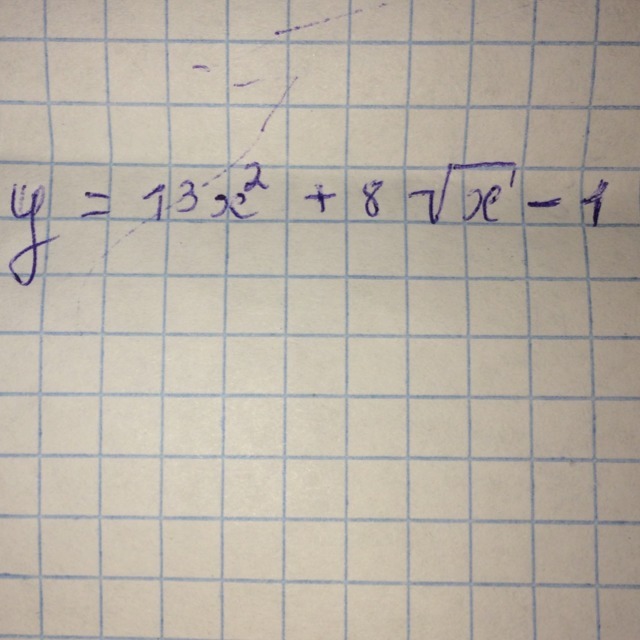 y = 13x² + 8√x - 1